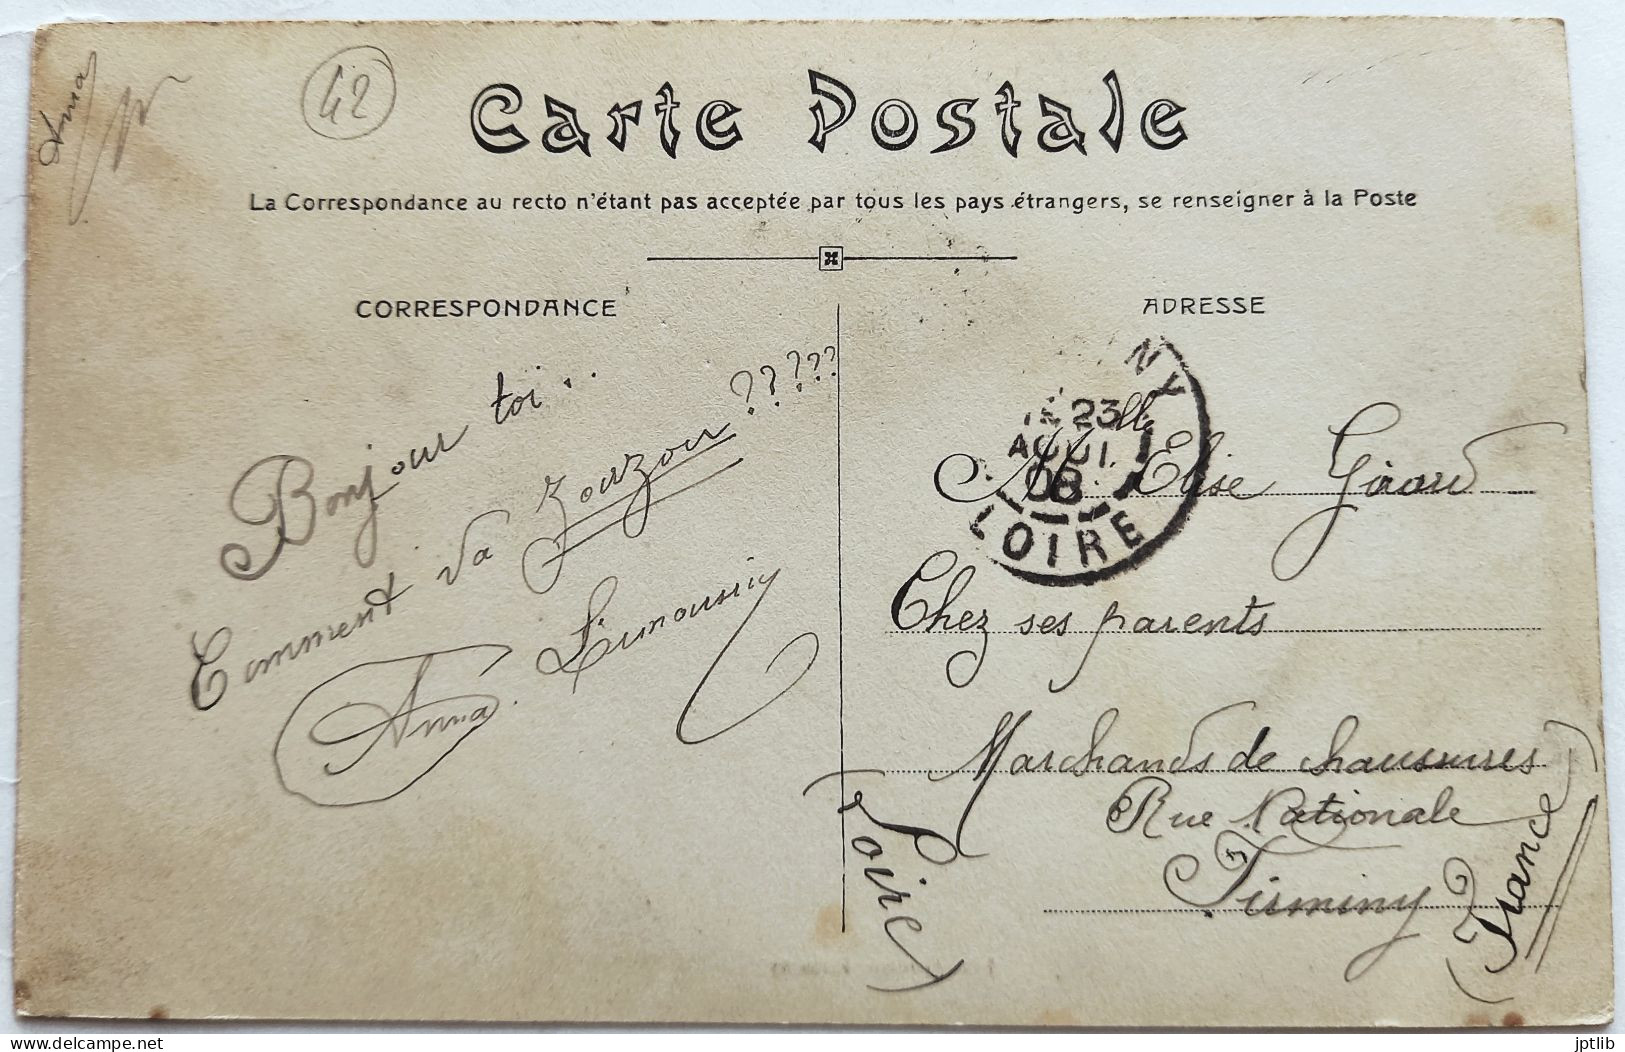 Anna
42
Carte Postale
La Correspondance au recto n'étant pas acceptée par tous les pays étrangers, se renseigner à la Poste
CORRESPONDANCE
Bonjour toi..
Comment va Zouzou ?????
Anna. Limousin
ADRESSE
NY
23
AOUT
08
LOIRE
Mlle Elise Girard
Chez ses parents
Marchands de chaussures
Rue Nationale
Firminy
(Loire)
(France)
delcampe.net
jptlib